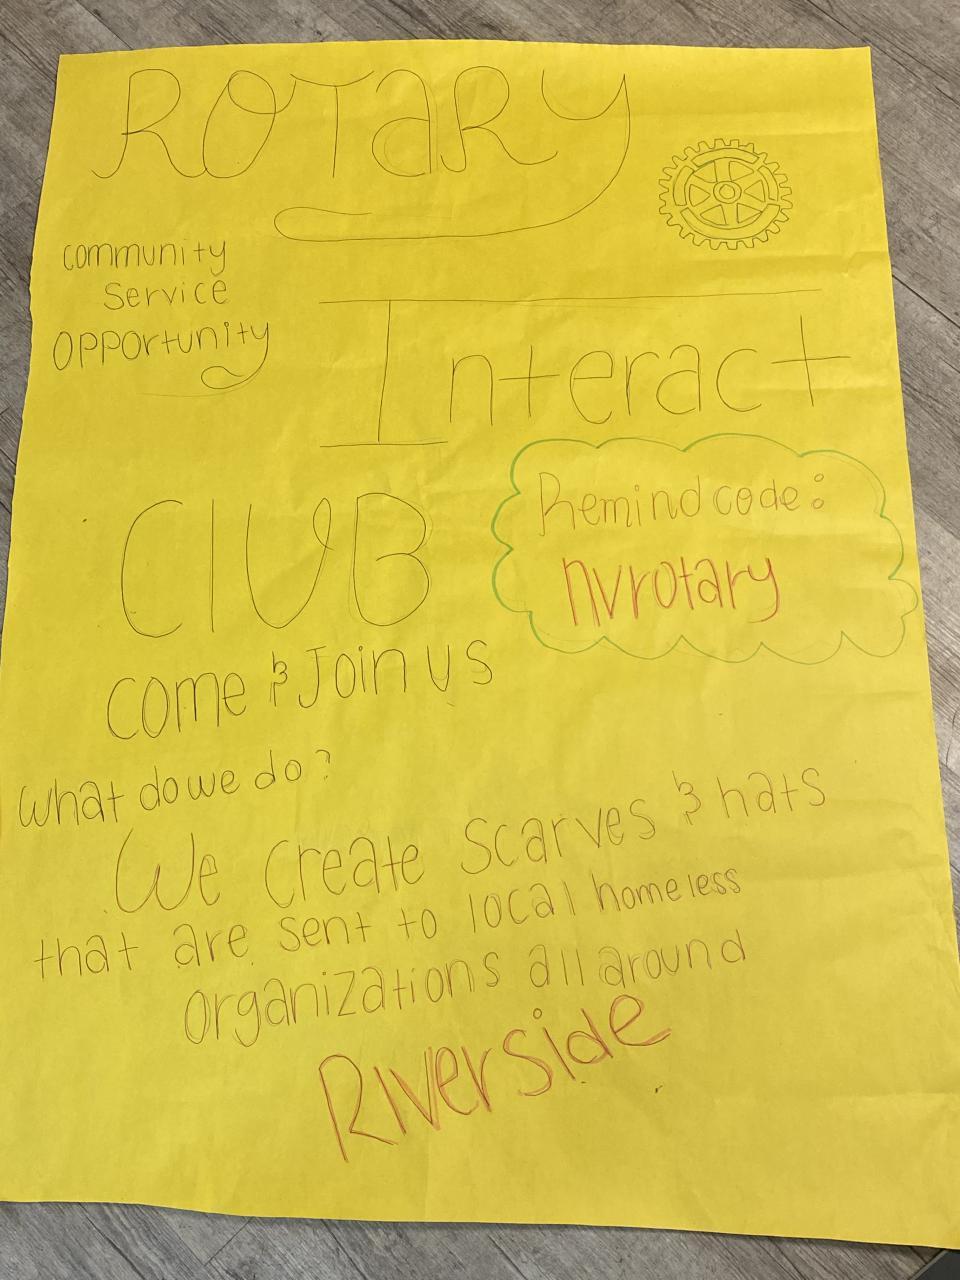 ROTARY
Community
Service
Opportunity
Interact
ClUB
Remind code:
nvrotary
Come & Join us
What do we do?
We Create Scarves & hats
that are sent to local homeless
organizations all around
Riverside